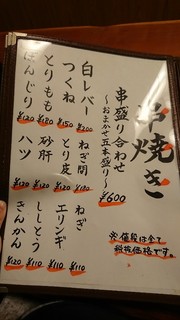 串焼き
串盛り合わせ
～おまかせ五本盛り～
¥600
白レバー ¥200
つくね ¥150
とりもも ¥120
ぼんじり ¥120
ねぎ間 ¥180
とり皮 ¥120
砂肝 ¥120
ハツ ¥120
ねぎ ¥110
エリンギ ¥110
ししとう ¥110
きんかん ¥110
※値段は全て
税抜価格です。